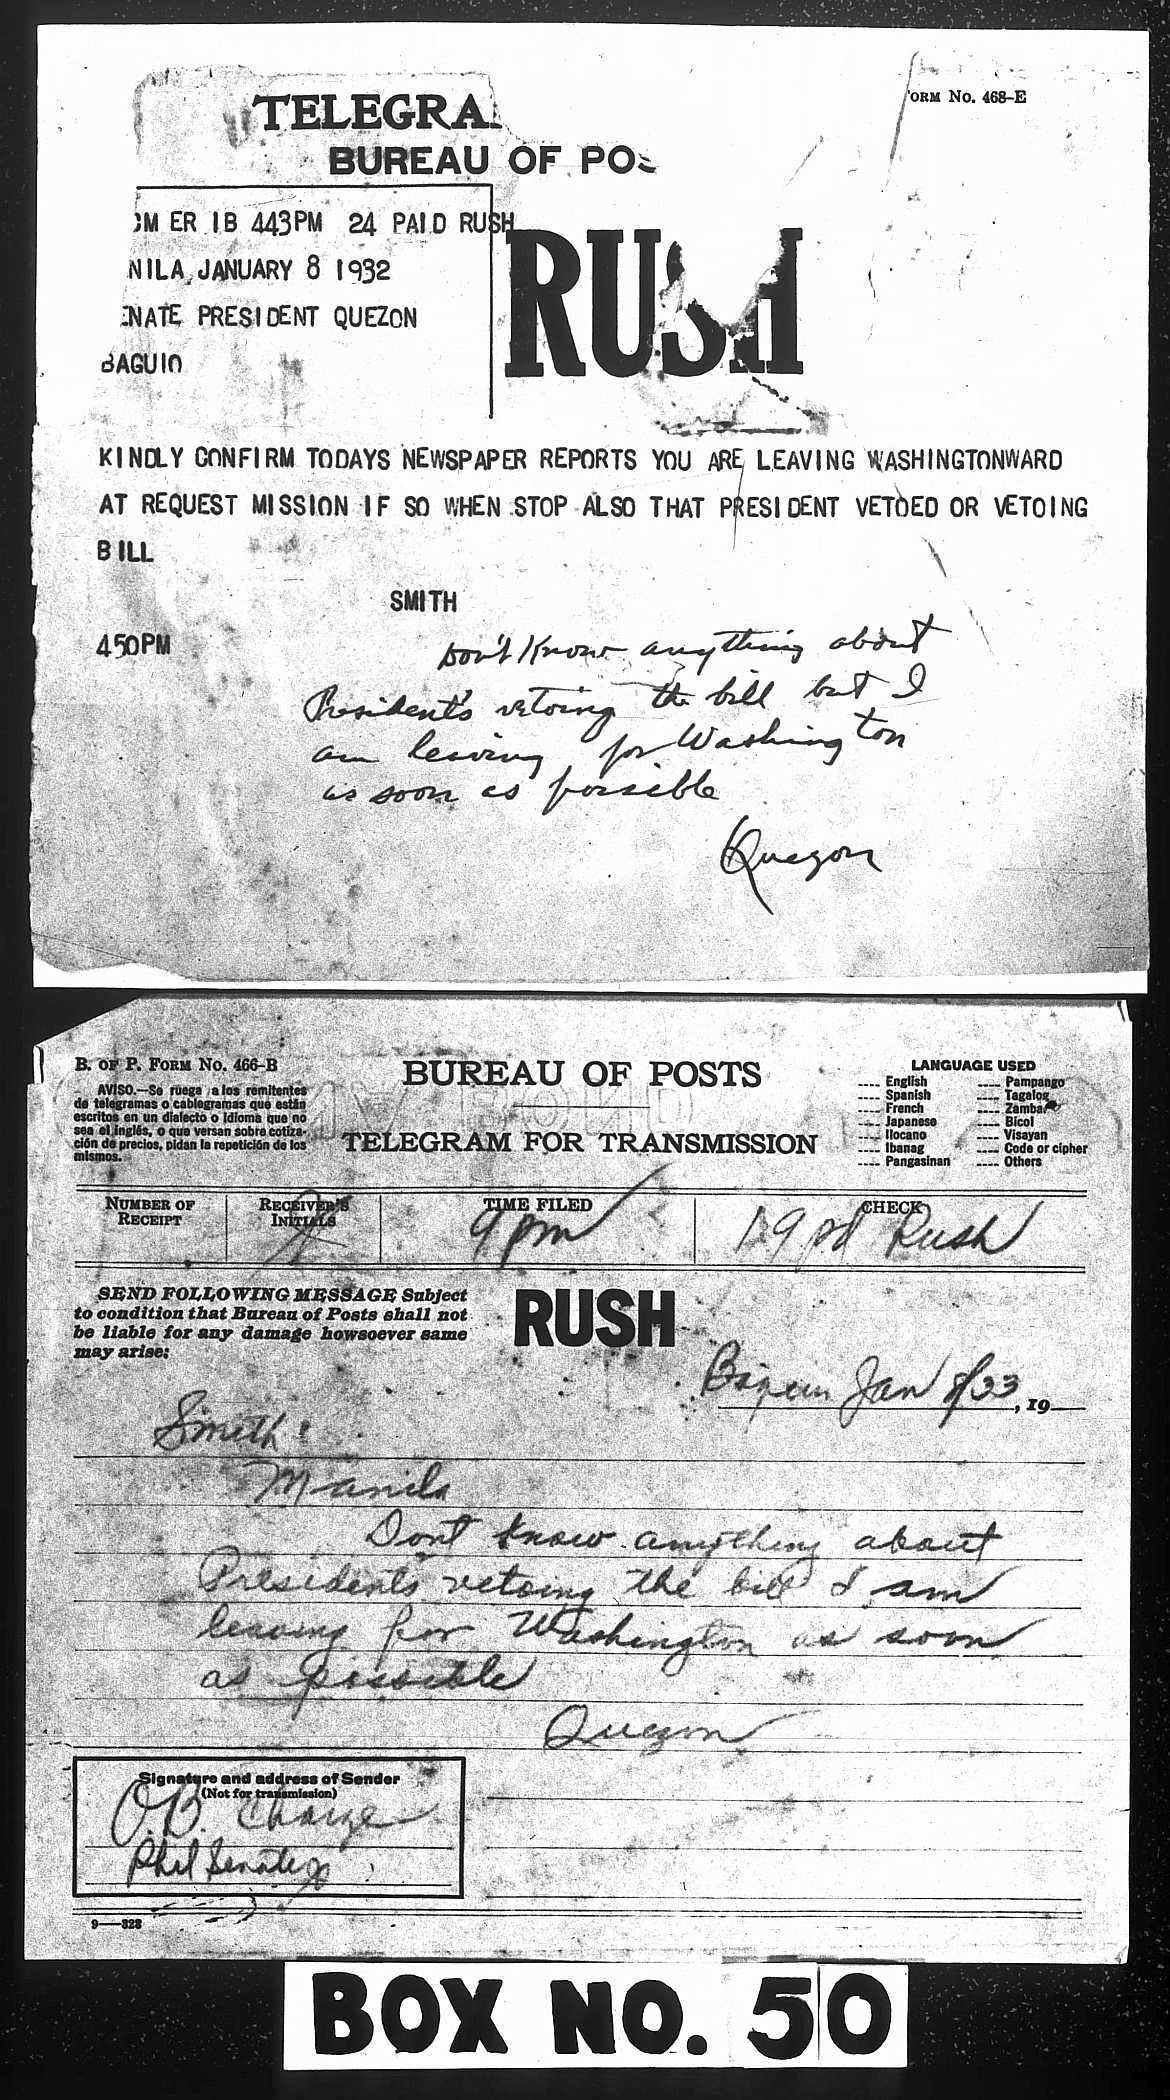 TELEGRA
ORM No. 468-E
BUREAU OF POS
OM ER IB 443PM 24 PAID RUSH
NILA JANUARY 8 1932
ENATE PRESIDENT QUEZON
BAGUIO
RUSH
KINDLY CONFIRM TODAYS NEWSPAPER REPORTS YOU ARE LEAVING WASHINGTONWARD
AT REQUEST MISSION IF SO WHEN STOP ALSO THAT PRESIDENT VETOED OR VETOING
BILL
SMITH
450PM
Don't Know anything about
President's vetoing the bill but I
am leaving for Washington
as soon as possible
Quezon
B. OF P. FORM No. 466-B
AVISO.—Se ruega a los remitentes
de telegramas o cablegramas que están
escritos en un dialecto o idioma que no
sea el inglés, o que versan sobre cotiza-
ción de precios, pidan la repetición de los
mismos.
BUREAU OF POSTS
TELEGRAM FOR TRANSMISSION
LANGUAGE USED
---- English ---- Pampango
---- Spanish ---- Tagalog
---- French ---- Zambal
---- Japanese ---- Bicol
---- Ilocano ---- Visayan
---- Ibanag ---- Code or cipher
---- Pangasinan ---- Others
NUMBER OF
RECEIPT
RECEIVER'S
INITIALS
TIME FILED
9 pm
CHECK
19 pd Rush
SEND FOLLOWING MESSAGE Subject
to condition that Bureau of Posts shall not
be liable for any damage howsoever same
may arise:
RUSH
Jan 8/33, 19
Smith
Manila
Dont know anything about
Presidents vetoing the bill I am
leaving for Washington as soon
as possible
Quezon
Signature and address of Sender
(Not for transmission)
O.B. Charge
Phil Senate
9—328
BOX NO. 50